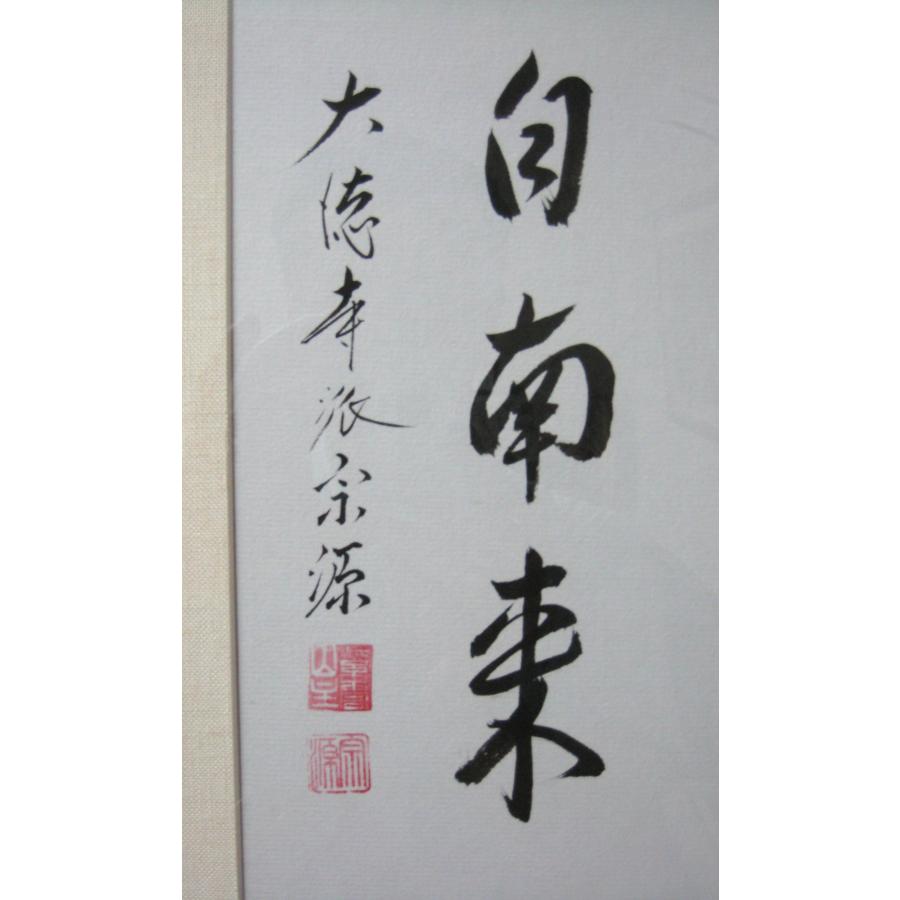 自南来
大徳寺派宗源
宗源